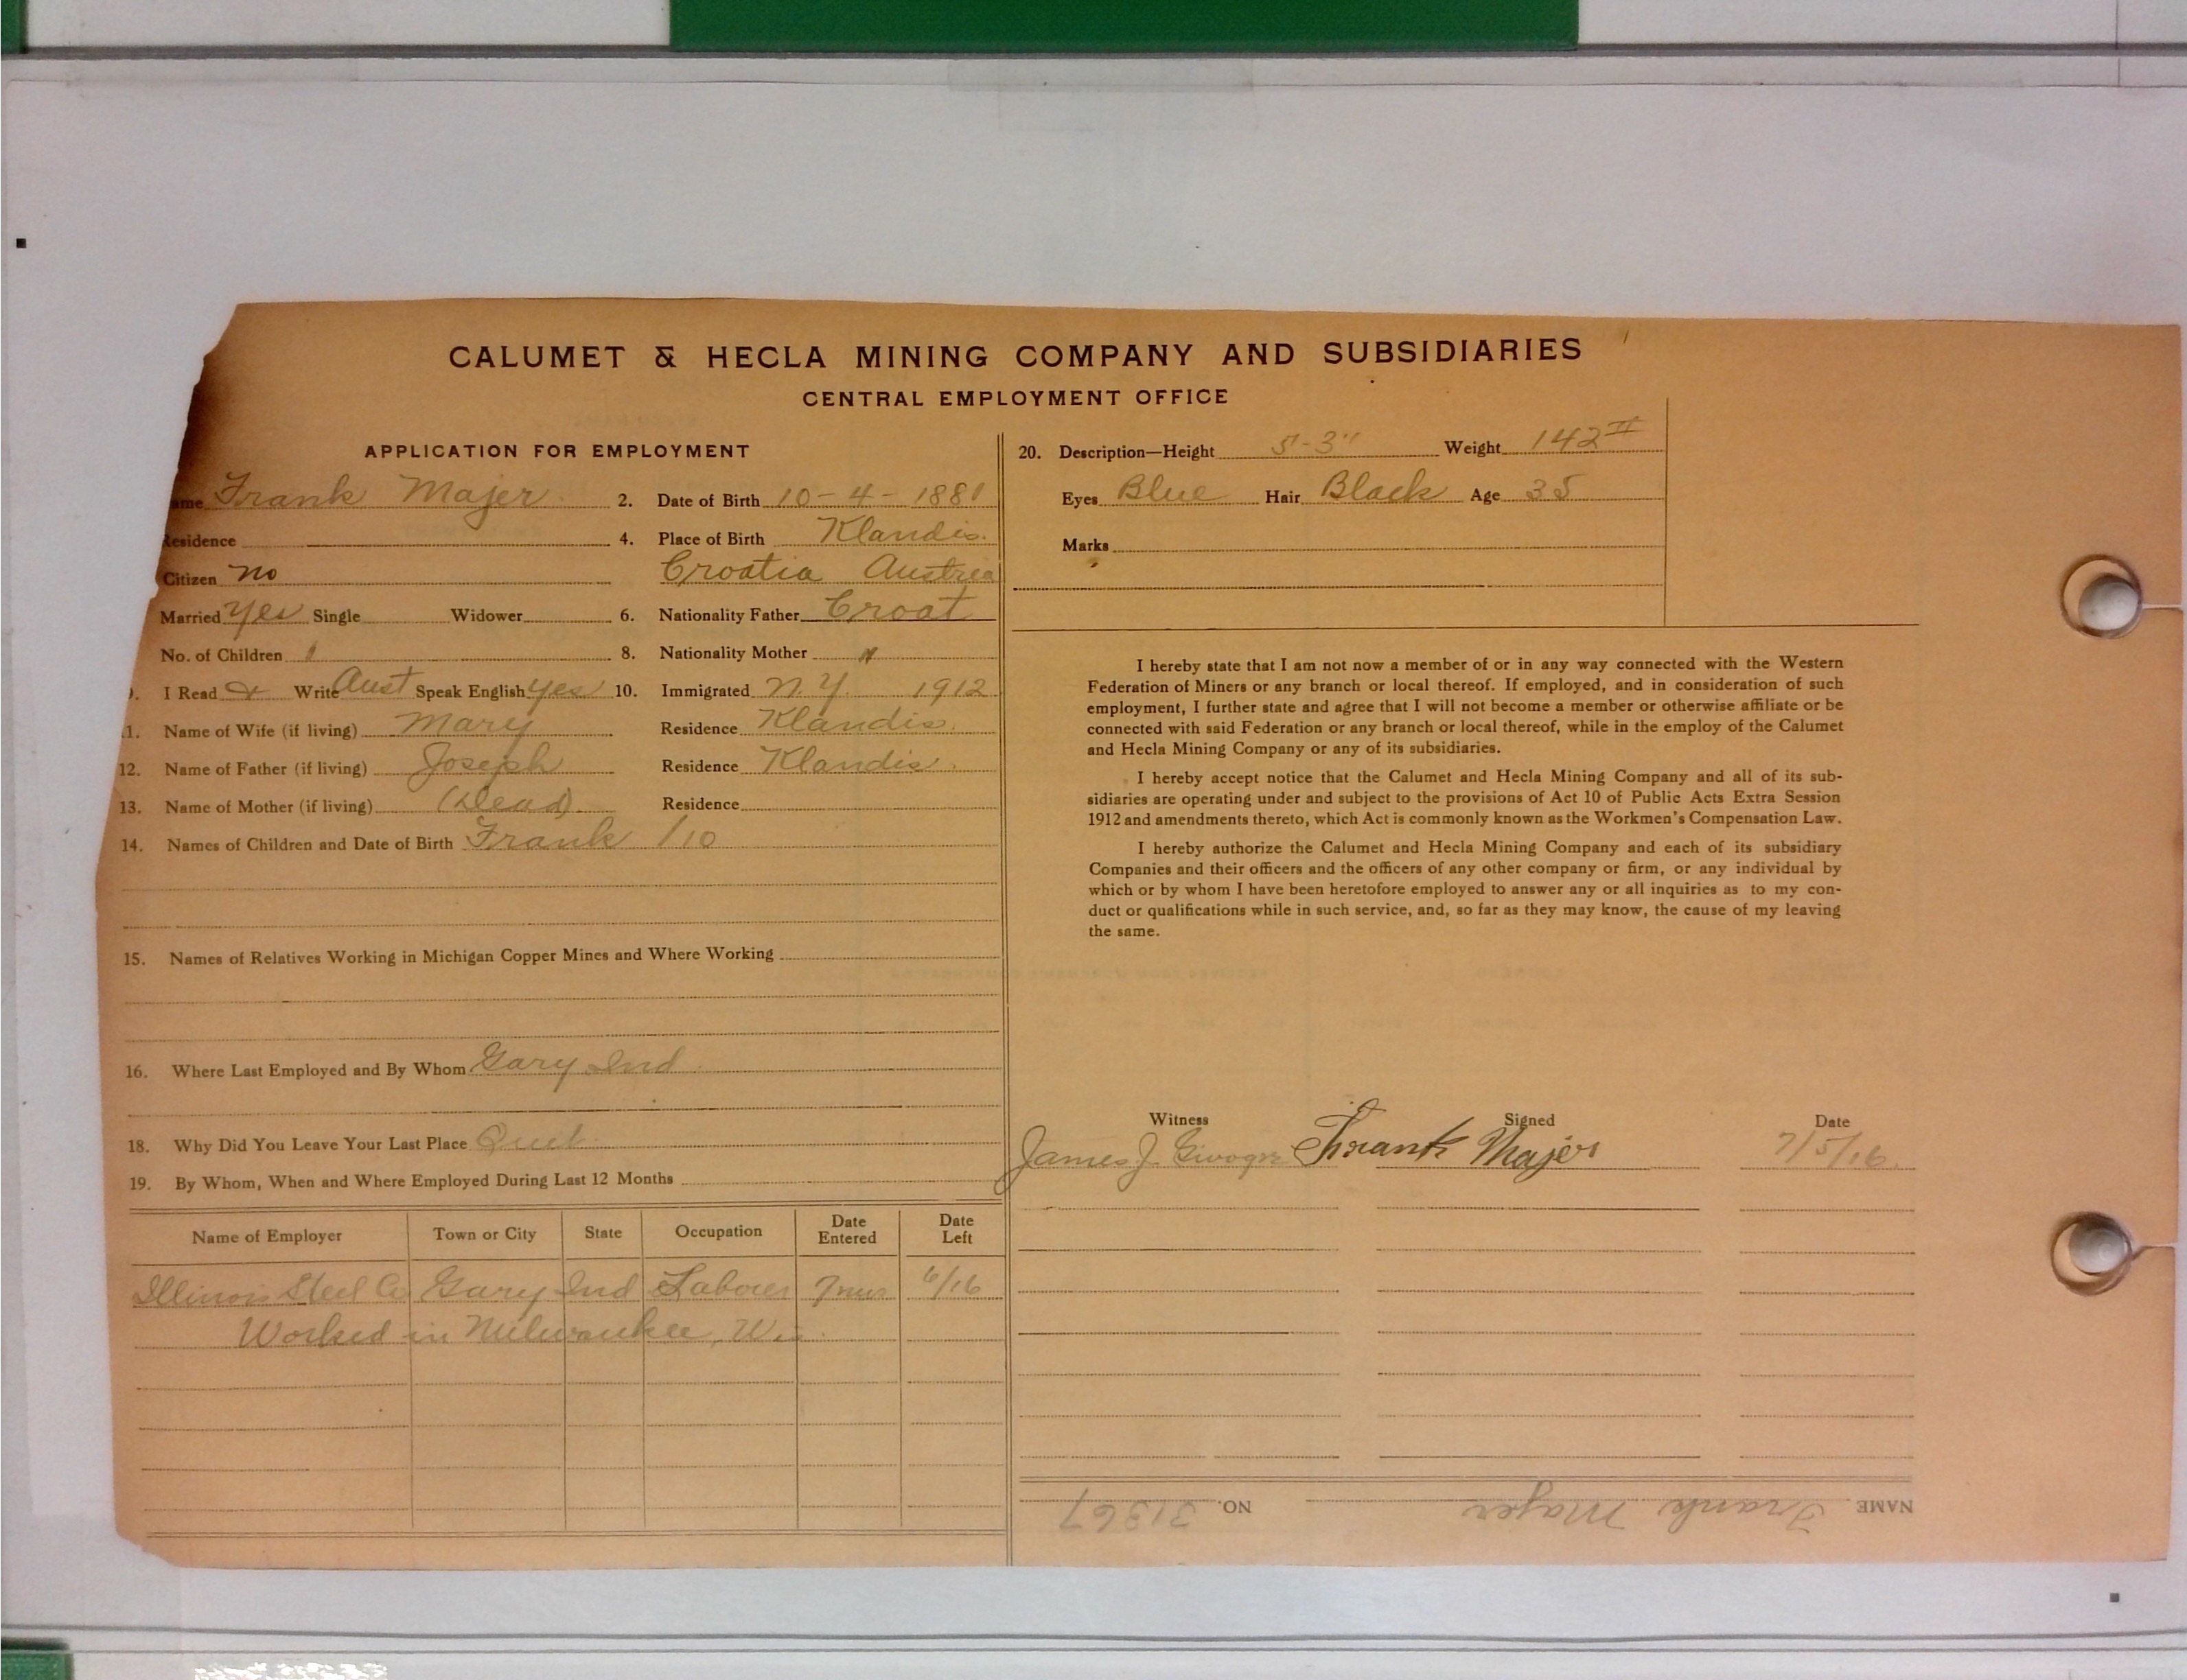 CALUMET & HECLA MINING COMPANY AND SUBSIDIARIES
CENTRAL EMPLOYMENT OFFICE
APPLICATION FOR EMPLOYMENT
ame Frank Majer 2. Date of Birth 10-4-1881
Residence 4. Place of Birth Klandis.
Citizen no Croatia Austria
Married yes Single Widower 6. Nationality Father Croat
No. of Children 1 8. Nationality Mother "
9. I Read & Write Aust Speak English yes 10. Immigrated N.Y. 1912
11. Name of Wife (if living) Mary Residence Klandis.
12. Name of Father (if living) Joseph Residence Klandis.
13. Name of Mother (if living) (Dead). Residence
14. Names of Children and Date of Birth Frank /10
15. Names of Relatives Working in Michigan Copper Mines and Where Working
16. Where Last Employed and By Whom Gary Ind.
18. Why Did You Leave Your Last Place Quit.
19. By Whom, When and Where Employed During Last 12 Months
Name of Employer Town or City State Occupation Date Entered Date Left
Illinois Steel Co Gary Ind Laborer 7 mos 6/16
Worked in Milwaukee, Wis.
20. Description—Height 5'-3" Weight 142
Eyes Blue Hair Black Age 35
Marks
I hereby state that I am not now a member of or in any way connected with the Western
Federation of Miners or any branch or local thereof. If employed, and in consideration of such
employment, I further state and agree that I will not become a member or otherwise affiliate or be
connected with said Federation or any branch or local thereof, while in the employ of the Calumet
and Hecla Mining Company or any of its subsidiaries.
I hereby accept notice that the Calumet and Hecla Mining Company and all of its sub-
sidiaries are operating under and subject to the provisions of Act 10 of Public Acts Extra Session
1912 and amendments thereto, which Act is commonly known as the Workmen's Compensation Law.
I hereby authorize the Calumet and Hecla Mining Company and each of its subsidiary
Companies and their officers and the officers of any other company or firm, or any individual by
which or by whom I have been heretofore employed to answer any or all inquiries as to my con-
duct or qualifications while in such service, and, so far as they may know, the cause of my leaving
the same.
Witness Signed Date
James J. Frank Majer 7/5/16.
NAME Frank Majer NO. 31367